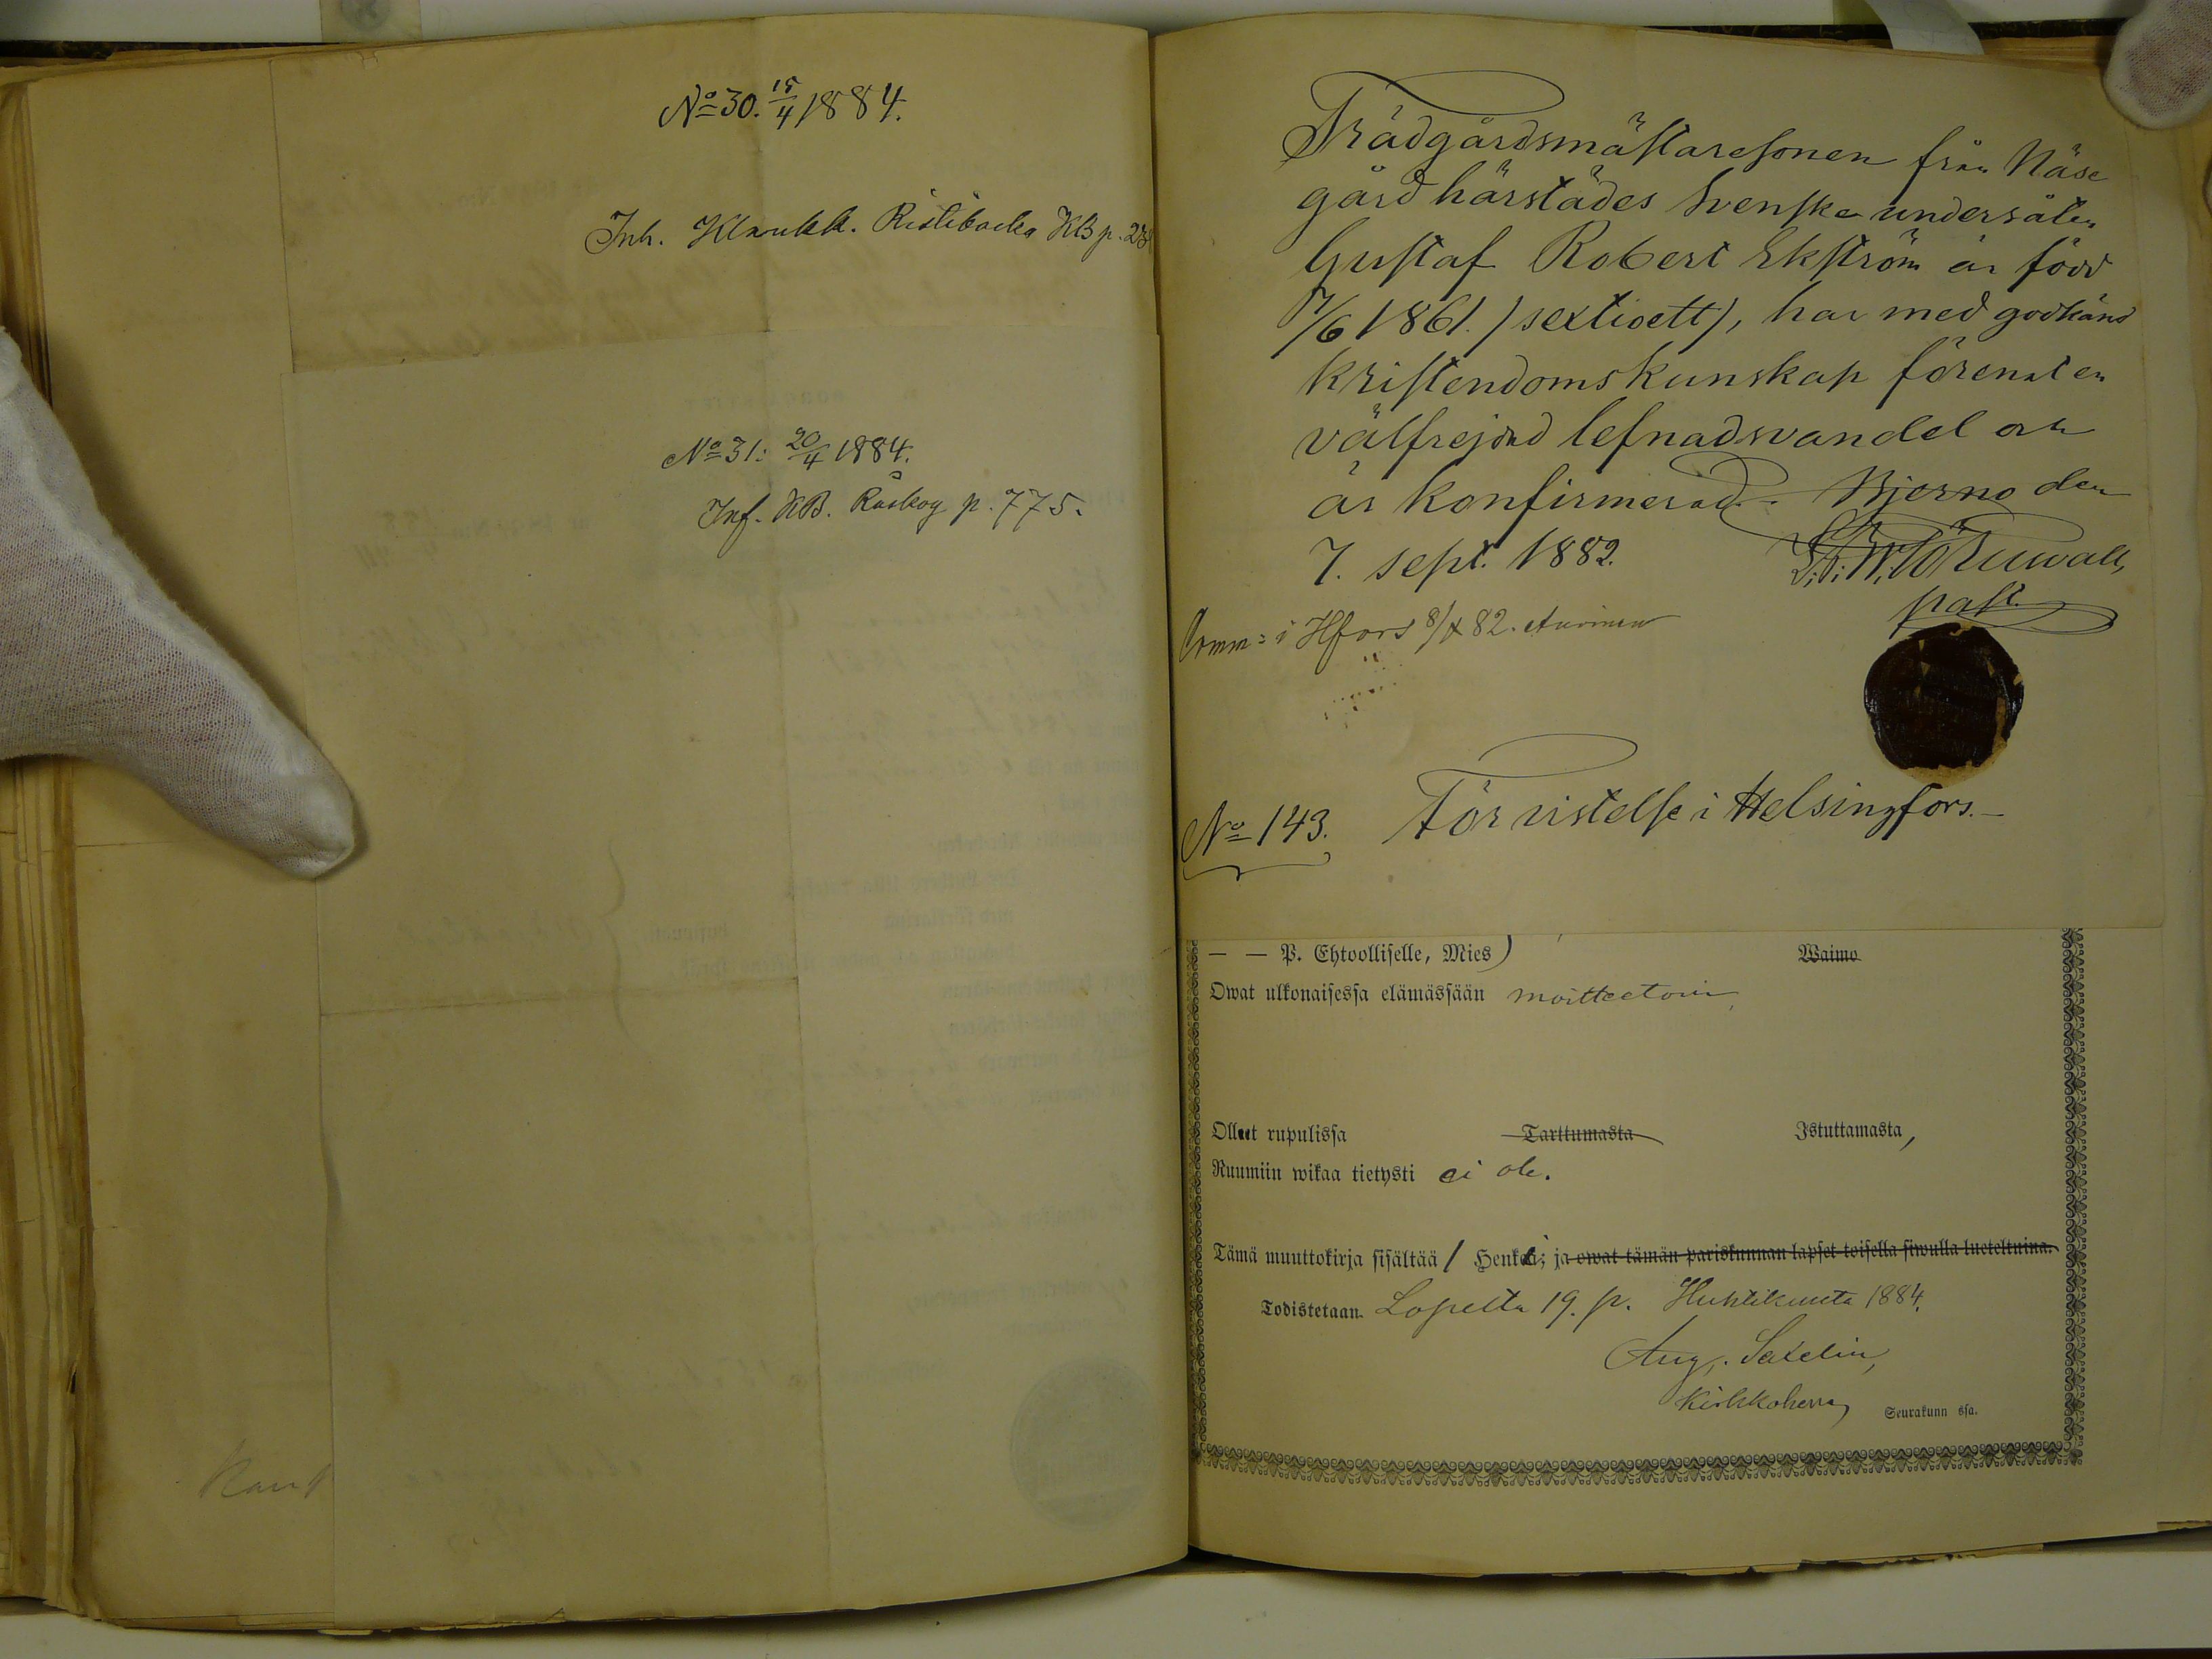 No 30. 15/4 1884.
Inh. Klaukk. Ristibacka KB p. 23
No 31: 20/4 1884.
Inf. KB. Råskog p. 775.
Trädgårdsmästaresonen från Näse
gård härstädes Svenske undersåten
Gustaf Robert Ekström är född
7/6 1861. (sextioett), har med godkänd
kristendomskunskap förenat en
välfrejdad lefnadsvandel och
är konfirmerad. Bjerno den
7. sept. 1882.
past.
Comm: i Hfors 8/X 82.
No 143. För vistelse i Helsingfors.
— — P. Ehtoolliselle, Mies) Waimo
Owat ulkonaisessa elämässään moitteetoin
Olleet rupulissa Tarttumasta Istuttamasta,
Ruumiin wikaa tietysti ei ole.
Tämä muuttokirja sisältää 1 Henkeä; ja owat tämän pariskunnan lapset toisella siwulla lueteltuina.
Todistetaan. Lopelta 19. p. Huhtikuuta 1884.
Aug. Saxelin,
Kirkkoherra Seurakunn ssa.